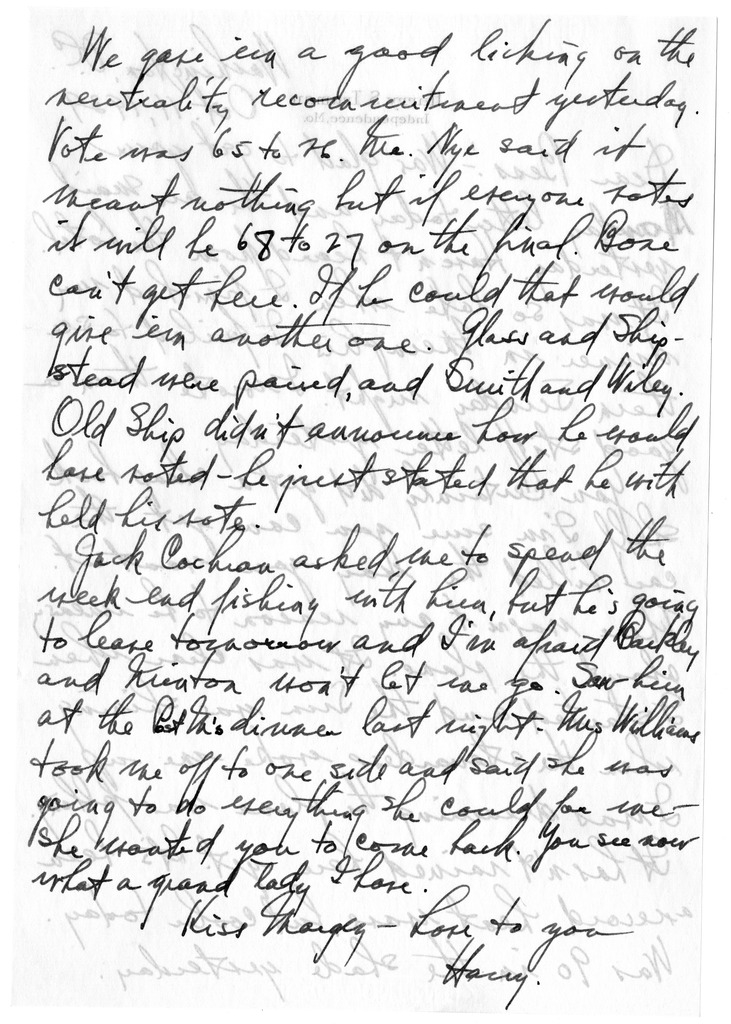 We gave 'em a good licking on the
neutrality recommitment yesterday.
Vote was 65 to 26. Mr. Nye said it
meant nothing but if everyone votes
it will be 68 to 27 on the final. Bone
can't get here. If he could that would
give 'em another one. Glass and Ship-
stead were paired, and Smith and Wiley.
Old Ship didn't announce how he would
have voted - he just stated that he with
held his vote.
Jack Cochran asked me to spend the
week-end fishing with him, but he's going
to leave tomorrow and I'm afraid Barkley
and Minton won't let me go. Saw him
at the Post M's dinner last night. Mrs Williams
took me off to one side and said she was
going to do everything she could for me -
she wanted you to come back. You see now
what a grand lady I have.
Kiss Margey - Love to you
Harry.